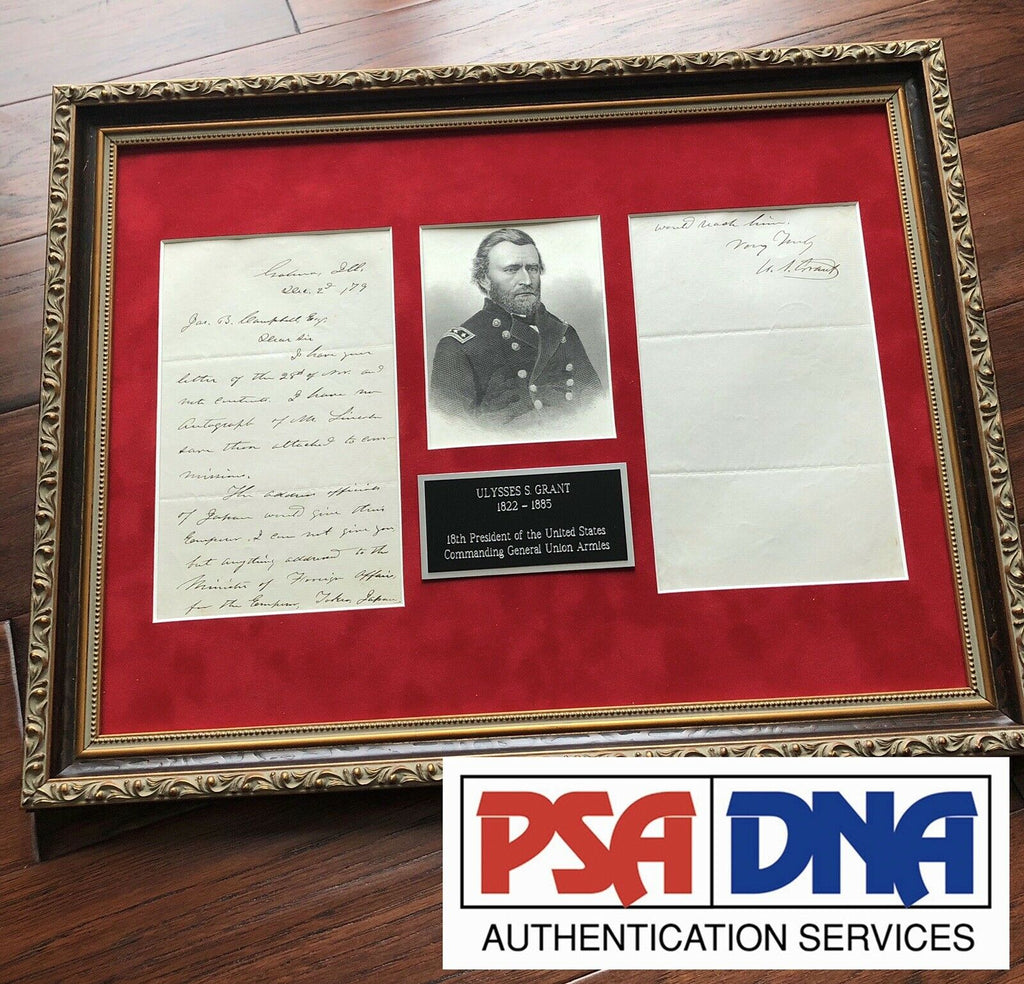 Galena, Ill.
Dec. 2d '79
Jas. B. Campbell Esq.
Dear Sir
I have your
letter of the 28th of Nov. and
note contents. I have no
Autograph of Mr. Lincoln
save those attached to com-
missions.
The address officials
of Japan would give their
Emperor I can not give you
but anything addressed to the
Minister of Foreign Affairs,
for the Emperor, Tokio, Japan,
would reach him.
Very Truly
U. S. Grant
ULYSSES S. GRANT
1822 – 1885
18th President of the United States
Commanding General Union Armies
PSA DNA
AUTHENTICATION SERVICES